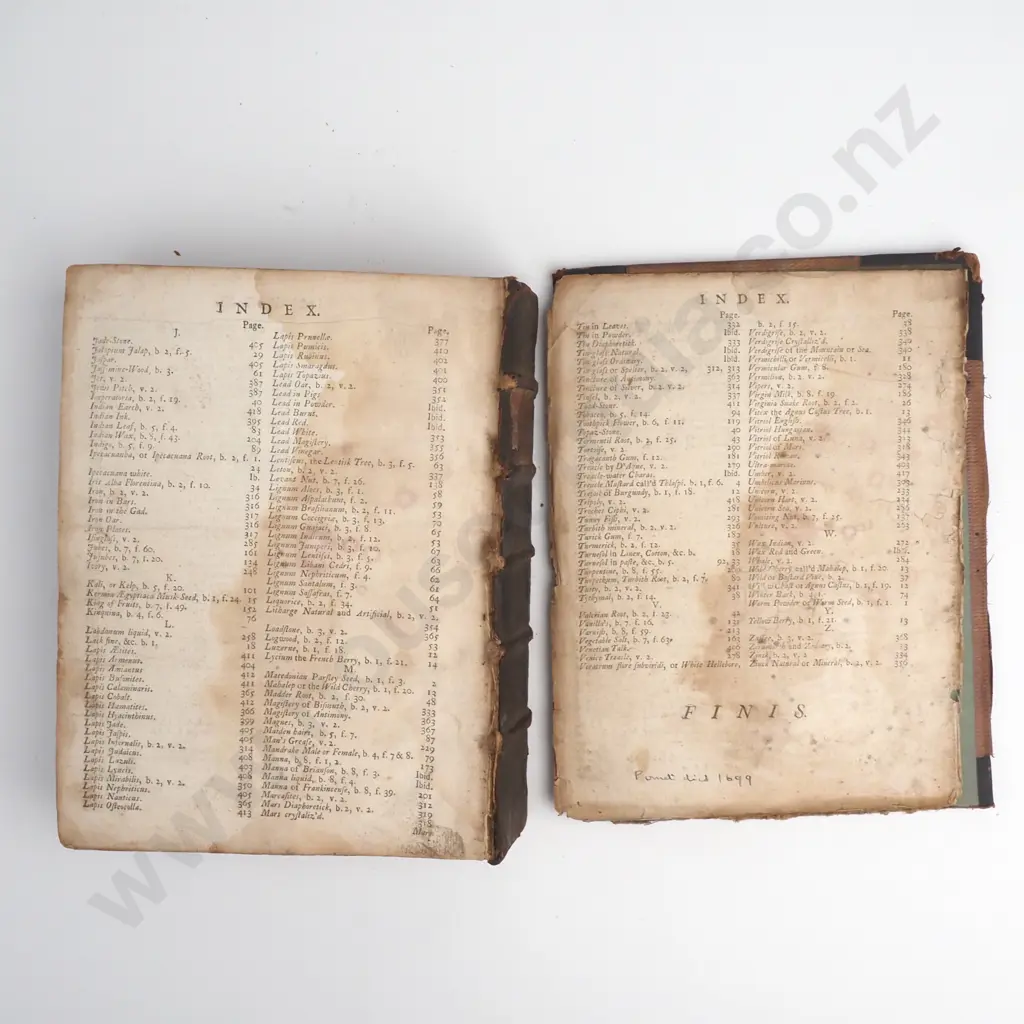 INDEX.
J.
Page.
Jade-Stone. 405
Jalapium Jalap, b. 2, f. 5. 29
Jaspar. 405
Jessamine-Wood, b. 3. 61
Jet, v. 2. 387
Jews Pitch, v. 2. 387
Imperatoria, b. 2, f. 19. 40
Indian Earth, v. 2. 418
Indian Ink. 395
Indian Leaf, b. 5, f. 4. 83
Indian Wax, b. 8, f. 43. 204
Indigo, b. 5, f. 9. 89
Ipecacuanha, or Ipecacuana Root, b. 2, f. 1. 24
Ipecacuana white. Ib.
Iris Alba Florentina, b. 2, f. 10. 34
Iron, b. 2, v. 2. 316
Iron in Bars. 316
Iron in the Gad. 317
Iron Oar. 316
Iron Plates. 317
Isinglass, v. 2. 285
Jubes, b. 7, f. 60. 161
Jujubes, b. 7, f. 20. 134
Ivory, v. 2. 248
K.
Kali, or Kelp, b. 5, f. 20. 101
Kermia Ægyptiaca Musk-Seed, b. 1, f. 24. 15
King of Fruits, b. 7, f. 49. 152
Kinquina, b. 4, f. 6. 76
L.
Labdanum liquid, v. 2. 258
Lack fine, &c. b. 1. 18
Lapis Ætites. 411
Lapis Armenus. 404
Lapis Amiantus 412
Lapis Bufonites. 411
Lapis Calaminaris. 365
Lapis Cobalt. 412
Lapis Hæmatites. 366
Lapis Hyacinthinus. 399
Lapis Jade. 405
Lapis Jaspis. 405
Lapis Infernalis, b. 2, v. 2. 314
Lapis Judaicus. 408
Lapis Lazuli. 403
Lapis Lyncis. 406
Lapis Mirabilis, b. 2, v. 2. 350
Lapis Nephriticus. 405
Lapis Nauticus. 365
Lapis Osteocolla. 413
Page.
Lapis Prunellæ. 377
Lapis Pumicis. 410
Lapis Rubinus. 402
Lapis Smaragdus. 401
Lapis Topazius. 400
Lead Oar, b. 2, v. 2. 351
Lead in Pigs. 352
Lead in Powder. Ibid.
Lead Burnt. Ibid.
Lead Red. Ibid.
Lead White. 353
Lead Magistery. 355
Lead Vinegar. 356
Lentiscus, the Lentisk Tree, b. 3, f. 5. 63
Leton, b. 2, v. 2. 337
Levant Nut, b. 7, f. 26. 138
Lignum Aloes, b. 3, f. 1. 58
Lignum Aspalathum, f. 2. 59
Lignum Brasilianum, b. 2, f. 11. 53
Lignum Coccigriæ, b. 3, f. 13. 70
Lignum Guajaci, b. 3, f. 8. 65
Lignum Indicum, b. 2, f. 12. 53
Lignum Juniperi, b. 3, f. 10. 67
Lignum Lentisci, b. 3, f. 5. 63
Lignum Libani Cedri, f. 9. 66
Lignum Nephriticum, f. 4. 62
Lignum Santalum, f. 3. 61
Lignum Sassafras, f. 7. 64
Liquorice, b. 2, f. 34. 51
Litharge Natural and Artificial, b. 2, v. 2, 354
Loadstone, b. 3, v. 2. 365
Logwood, b. 2, f. 12. 53
Lucerne, b. 1, f. 18. 12
Lycium the French Berry, b. 1, f. 21. 14
M.
Macedonian Parsley Seed, b. 1, f. 3. 2
Mahalep or the Wild Cherry, b. 1, f. 20. 13
Madder Root, b. 2, f. 30. 48
Magistery of Bismuth, b. 2, v. 2. 333
Magistery of Antimony. 363
Magnes, b. 3, v. 2. 367
Maiden hair, b. 5, f. 7. 87
Man's Grease, v. 2. 229
Mandrake Male or Female, b. 4, f. 7 & 8. 79
Manna, b. 8, f. 1, 2. 173
Manna of Briançon, b. 8, f. 3. Ibid.
Manna liquid, b. 8, f. 4. Ibid.
Manna of Frankincense, b. 8, f. 39. 201
Marcasites, b. 2, v. 2. 312
Mars Diaphoretick, b. 2, v. 2. 319
Mars crystaliz'd.
Mars
INDEX.
Page.
Tin in Leaves. 332
Tin in Powder. Ibid.
Tin Diaphoretick. 333
Tin-glass Natural. Ibid.
Tin-glass Ordinary. Ibid.
Tin-glass or Spelter, b. 2, v. 2, 312, 313
Tincture of Antimony. 363
Tincture of Silver, b. 2, v. 2. 314
Tinsel, b. 2, v. 2. 337
Toad-Stone. 411
Tobacco, b. 5, f. 14. 94
Toothpick Flower, b. 6, f. 11. 119
Topaz-Stone. 40
Tormentil Root, b. 2, f. 15. 43
Tortoise, v. 2. 290
Tragacanth Gum, f. 12. 181
Treacle by D'Aquin, v. 2. 279
Treacle-water Charas. Ibid.
Treacle Mustard call'd Thlaspi, b. 1, f. 6. 4
Trefoil of Burgundy, b. 1, f. 18. 12
Tripoly, v. 2. 418
Troches Cyphi, v. 2. 281
Tunny Fish, v. 2. 293
Turbith mineral, b. 2, v. 2. 326
Turick Gum, f. 7. 182
Turmerick, b. 2, f. 12. 35
Turnesol in Linen, Cotton, &c. b. 18
Turnesol in paste, &c. b. 5. 92, 93
Turpentine, b. 8, f. 55.
Turpethum, Turbith Root, b. 2, f. 7. 30
Tutty, b. 2, v. 2. 341
Tithymal, b. 2, f. 14. 38
V.
Valerian Root, b. 2, f. 23. 42
Vanilla's, b. 7, f. 16. 131
Varnish, b. 8, f. 59. 213
Vegetable Salt, b. 7, f. 63. 163
Venetian Talk. 406
Venice Treacle, v. 2. 278
Veratrum flore subviridi, or White Hellebore,
Page.
b. 2, f. 15. 38
Verdigrise, b. 2, v. 2. 338
Verdigrise Crystaliz'd. 340
Verdigrise of the Mountain or Sea. 340
Vermicelli, or Vermichelli, b. 1. 11
Vermicular Gum, f. 8. 180
Vermilion, b. 2, v. 2. 328
Vipers, v. 2. 274
Virgin Milk, b. 8, f. 19. 186
Virginia Snake Root, b. 2, f. 2. 26
Vitex the Agnus Castus Tree, b. 1. 13
Vitriol English. 346
Vitriol Hungarian. 344
Vitriol of Luna, v. 2. 313
Vitriol of Mars. 318
Vitriol Roman. 343
Ultra-marine. 403
Umber, v. 2. 417
Umbilicus Marinus. 309
Unicorn, v. 2. 233
Unicorn Hart, v. 2. 234
Unicorn Sea, v. 2. 286
Vomiting Nut, b. 7, f. 25. 137
Vulture, v. 2. 263
W.
Wax Indian, v. 2. 272
Wax Red and Green. Ibid.
Whale, v. 2. 284
Wild Cherry call'd Mahalep, b. 1, f. 20. 13
Wild or Bastard Vine, b. 2. 37
Wild or Chast or Agnus Castus, b. 1, f. 19. 12
Winter Bark, b. 4. 74
Worm Powder or Worm Seed, b. 1, f. 1. 1
Y.
Yellow Berry, b. 1, f. 21. 13
Z.
Zaffer, b. 3, v. 2. 368
Zerumbet and Zedoary, b. 2. 33
Zink, b. 2, v. 2 334
Zinck Natural or Mineral, b. 2, v. 2. 356
FINIS.
1699